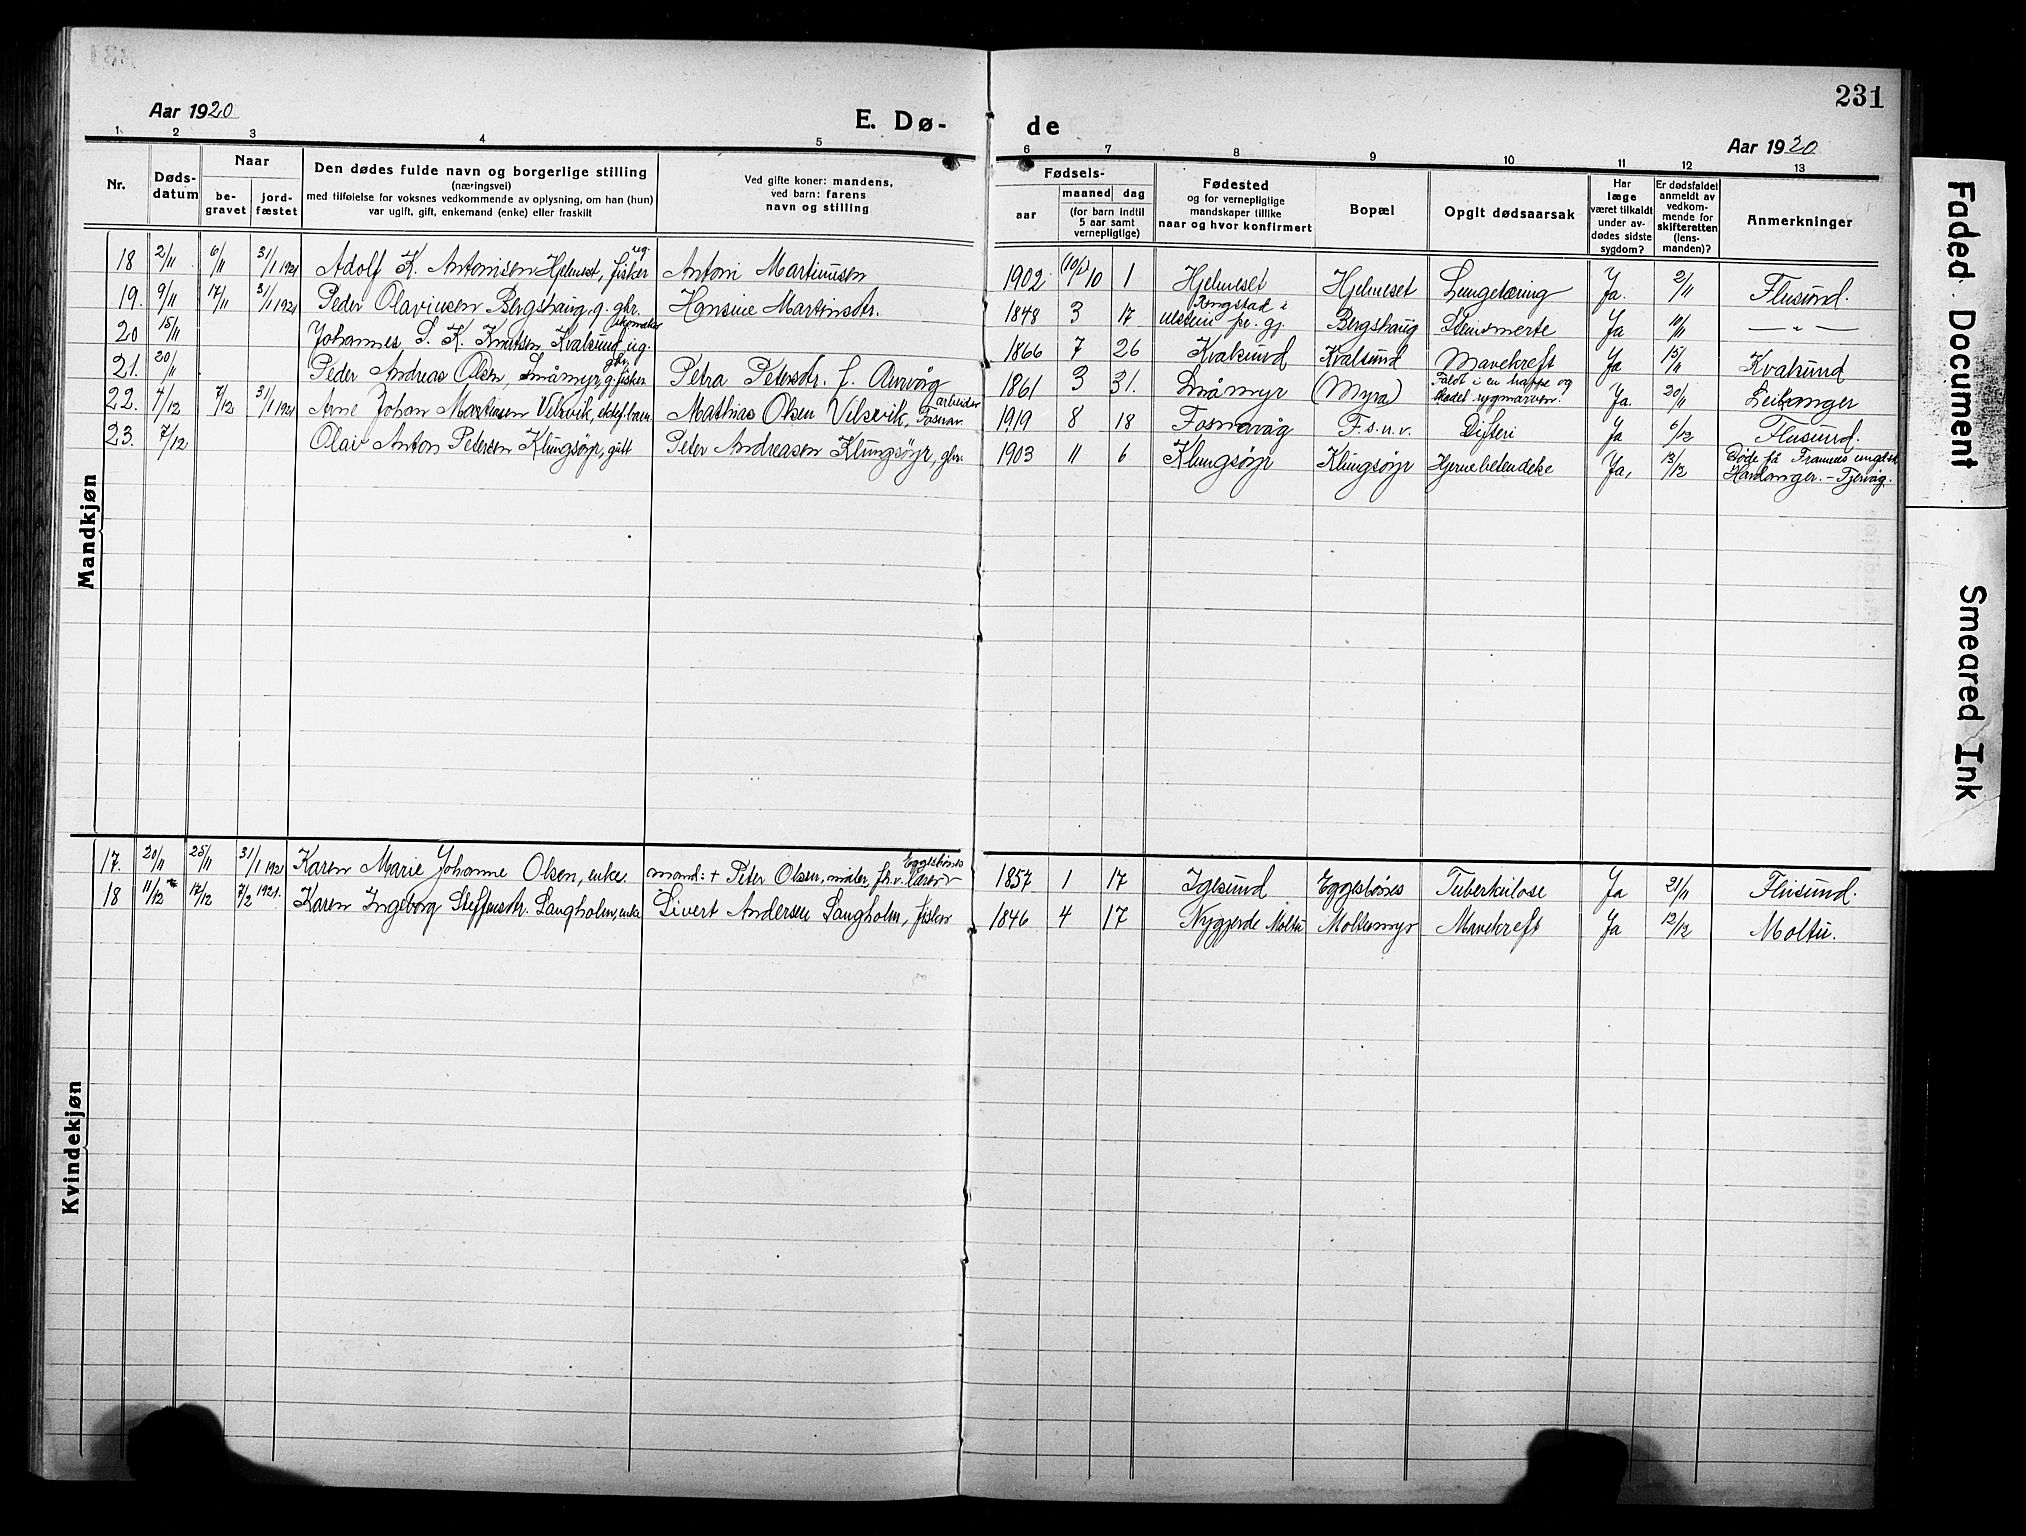 231
Aar 1920
E. Dø-
de
Aar 1920
1 2 3 4 5 6 7 8 9 10 11 12 13
Nr.
Døds-
datum
Naar
be-
gravet
jord-
fæstet
Den dødes fulde navn og borgerlige stilling
(næringsvei)
med tilføielse for voksnes vedkommende av oplysning, om han (hun)
var ugift, gift, enkemand (enke) eller fraskilt
Ved gifte koner: mandens,
ved barn: farens
navn og stilling
Fødsels-
aar
maaned
dag
(for barn indtil
5 aar samt
vernepligtige)
Fødested
og for vernepligtige
mandskaper tillike
naar og hvor konfirmert
Bopæl
Opgit dødsaarsak
Har
læge
været tilkaldt
under av-
dødes sidste
sygdom?
Er dødsfaldet
anmeldt av
vedkom-
mende for
skifteretten
(lens-
manden)?
Anmerkninger
Mandkjøn
18 2/11 6/11 31/1 1921 Adolf K. Antonisen Hjelmeset, fisker ug. Antoni Martinusen 1902 10 1 Hjelmeset Hjelmeset Lungetæring Ja. 2/11 Flusund.
19. 9/11 17/11 31/1 1921 Peder Olavinsen Bergshaug, g. gbr. Hansine Martinsdtr. 1848 3 17 Ringstad i Ulstein pr. gj. Bergshaug Ja 10/11 — " —
20 15/11 Johannes S. K. Knutsen Kvalsund, ug. 1866 7 26 Kvalsund Kvalsund Mavekreft Ja 15/11 Kvalsund
21. 20/11 Peder Andreas Olsen, Småmyr, g. fisker gbr. Petra Petersdtr. f. Alvevåg 1861 3 31. Småmyr (Myra) Faldt i en trappe og skadet rygmarven. Ja. 20/11 Leikanger
22. 4/12 7/12 31/1 1921 Arne Johan Martinsen Velsvik, ektef. barn Mathias Olsen Velsvik, arbeider Fosnav. 1919 8 18 Fosnavåg F.s.n.v. Difteri Ja 6/12 Flusund.
23. 7/12 Olav Anton Petersen Klungsöyr, gutt Peter Andreasen Klungsöyr, gbr. 1903 11 6 Klungsöyr Klungsöyr Hjernebetendelse Ja, 13/12 Døde på Framnes ungdsk. Hardanger. – Tjervåg.
Kvindekjøn
17. 20/11 25/11 31/1 1921 Karen Marie Johanne Olsen, enke. mand: + Peter Olsen, maler, Eggesbönes 1857 1 17 Igesund Eggesbönes Tuberkulose Ja 21/11 Flusund.
18 11/12 17/12 7/2 1921. Karen Ingeborg Steffensdtr. Langholm, enke Sivert Andersen Langholm, fisker 1846 4 17 Nygjerde Moltu Moltumyr Mavekreft Ja 12/12 Moltu.
Faded Document
Smeared Ink